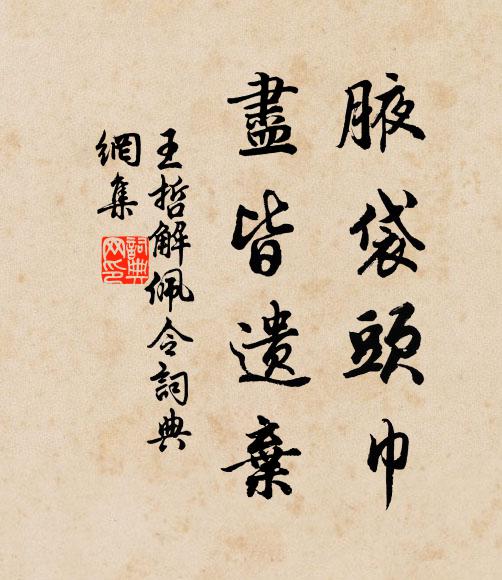 腋袋頭巾
盡皆遺棄
王哲解佩令詞典
網集
詞典
网印